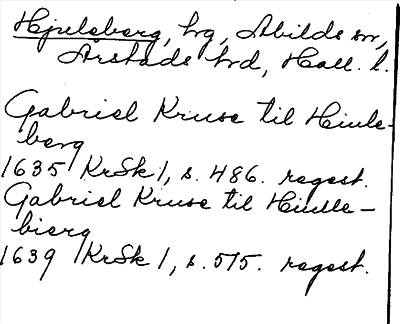 Hjulsberg, hg, Abilds sn,
Årstads hd, Hall. l.
Gabriel Kruse til Hiule-
berg
1635 KrSk 1, s. 486. regest.
Gabriel Kruse til Hiulle-
bierg
1639 KrSk 1, s. 575. regest.